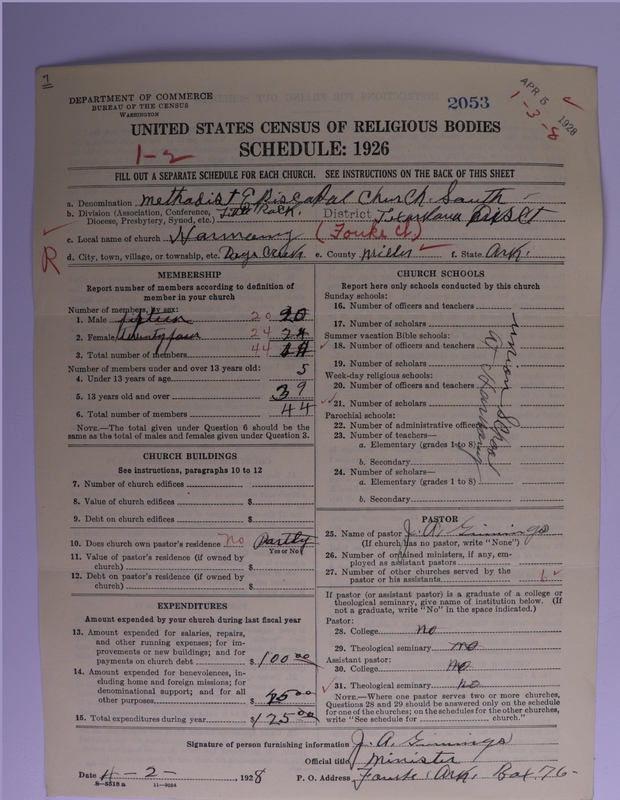 7
DEPARTMENT OF COMMERCE
BUREAU OF THE CENSUS
WASHINGTON
2053
APR 5 1928
1-3-8
UNITED STATES CENSUS OF RELIGIOUS BODIES
1-2
SCHEDULE: 1926
FILL OUT A SEPARATE SCHEDULE FOR EACH CHURCH. SEE INSTRUCTIONS ON THE BACK OF THIS SHEET
a. Denomination Methodist Episcopal Church, South
b. Division (Association, Conference, Diocese, Presbytery, Synod, etc.) Little Rock. District Texarkana Dist
c. Local name of church Harmony (Fouke Ct)
R
d. City, town, village, or township, etc. Days Creek e. County Miller f. State Ark.
MEMBERSHIP
Report number of members according to definition of
member in your church
Number of members, by sex:
1. Male fifteen 20 20
2. Female twenty four 24 24
3. Total number of members 44
Number of members under and over 13 years old:
4. Under 13 years of age 5
5. 13 years old and over 39
6. Total number of members 44
NOTE.—The total given under Question 6 should be
the same as the total of males and females given under Question 3.
CHURCH BUILDINGS
See instructions, paragraphs 10 to 12
7. Number of church edifices
8. Value of church edifices $
9. Debt on church edifices $
10. Does church own pastor's residence No Partly
Yes or No
11. Value of pastor's residence (if owned by
church) $
12. Debt on pastor's residence (if owned by
church) $
EXPENDITURES
Amount expended by your church during last fiscal year
13. Amount expended for salaries, repairs,
and other running expenses; for im-
provements or new buildings; and for
payments on church debt $ 100 00
14. Amount expended for benevolences, in-
cluding home and foreign missions; for
denominational support; and for all
other purposes $ 25 00
15. Total expenditures during year $ 125 00
CHURCH SCHOOLS
Report here only schools conducted by this church
Sunday schools:
16. Number of officers and teachers
17. Number of scholars
Summer vacation Bible schools:
18. Number of officers and teachers
19. Number of scholars
Week-day religious schools:
20. Number of officers and teachers
21. Number of scholars
Parochial schools:
22. Number of administrative officers
23. Number of teachers—
a. Elementary (grades 1 to 8)
b. Secondary
24. Number of scholars—
a. Elementary (grades 1 to 8)
b. Secondary
union School
at Harmony
PASTOR
25. Name of pastor J. A. Ginnings
(If church has no pastor, write "None")
26. Number of ordained ministers, if any, em-
ployed as assistant pastors
27. Number of other churches served by the
pastor or his assistants 6
If pastor (or assistant pastor) is a graduate of a college or
theological seminary, give name of institution below. (If
not a graduate, write "No" in the space indicated.)
Pastor:
28. College no
29. Theological seminary no
Assistant pastor:
30. College no
31. Theological seminary no
NOTE.—Where one pastor serves two or more churches,
Questions 28 and 29 should be answered only on the schedule
for one of the churches; on the schedules for the other churches,
write "See schedule for church."
Signature of person furnishing information J. A. Ginnings
Official title Minister
Date 4-2-, 1928
P. O. Address Fouke, Ark, Box 76-
8-5518 a 11-9034